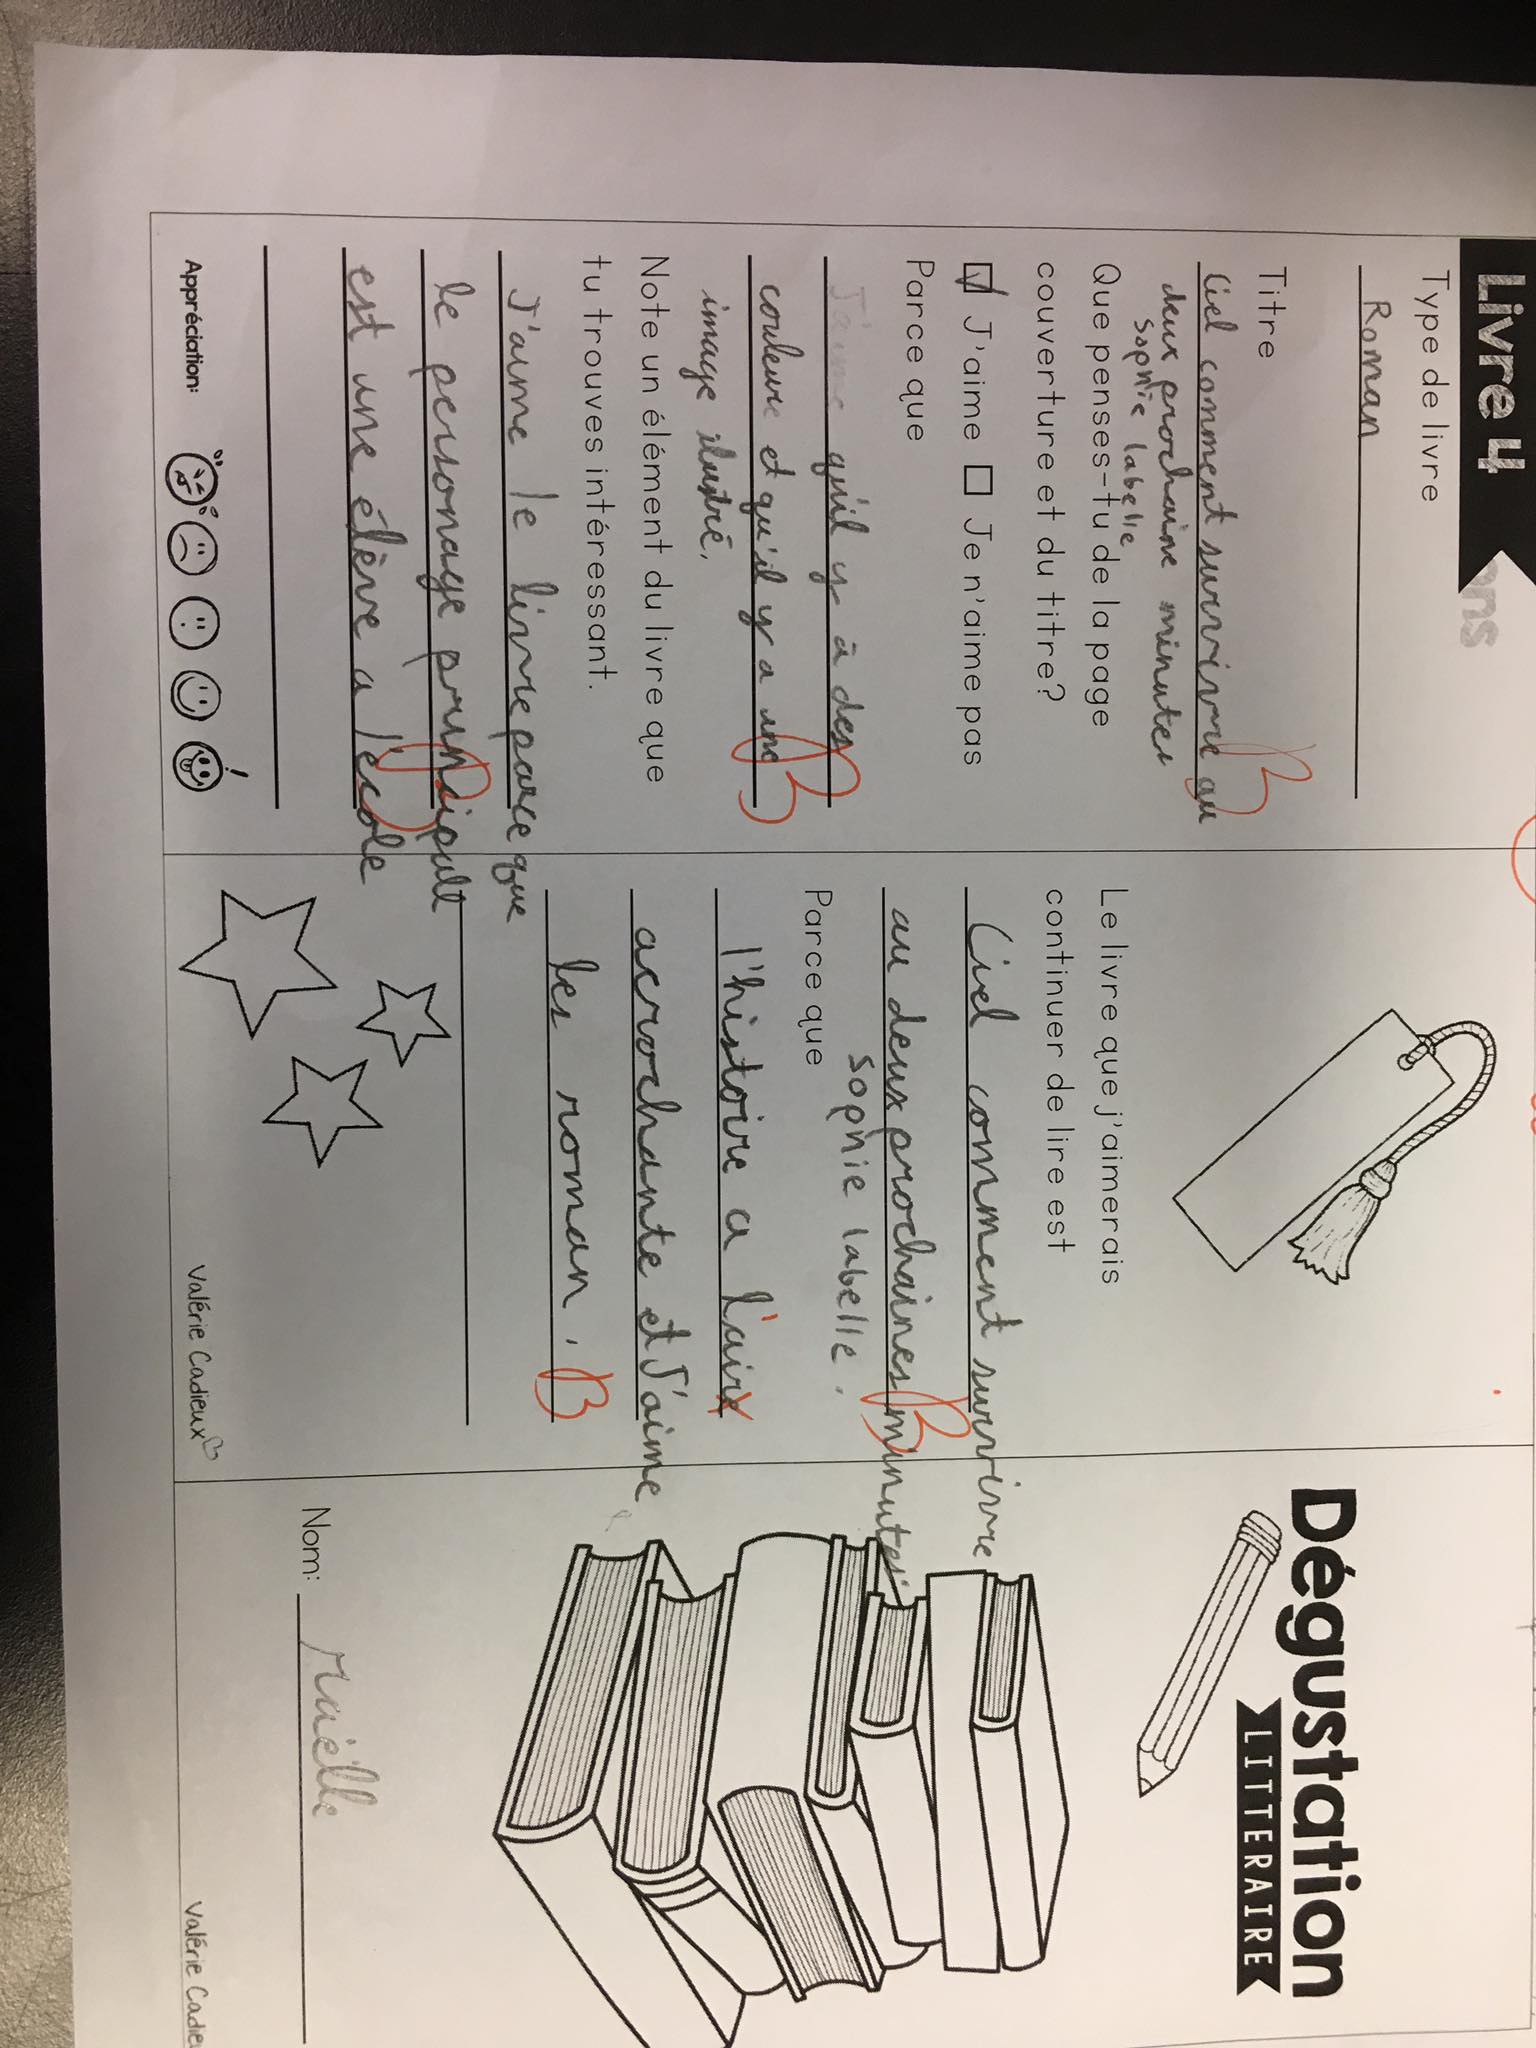 Livre 4
ns
Type de livre
Roman
Titre
Ciel comment survivre au
deux prochaine minutes
Sophie labelle
Que penses-tu de la page
couverture et du titre?
J'aime Je n'aime pas
Parce que
J'aime qu'il y à des
couleure et qu'il y a une
image ilustré.
Note un élément du livre que
tu trouves intéressant.
J'aime le livre parce que
le personage prinsipall
est une élève a l'école
Appréciation:
!
Le livre que j'aimerais
continuer de lire est
Ciel comment survivre
au deux prochaines minutes
Sophie labelle.
Parce que
l'histoire a l'aire
acrochante et J'aime
les roman.
Valérie Cadieux
Dégustation
LITTERAIRE
Nom: Maélle
Valérie Cadieu